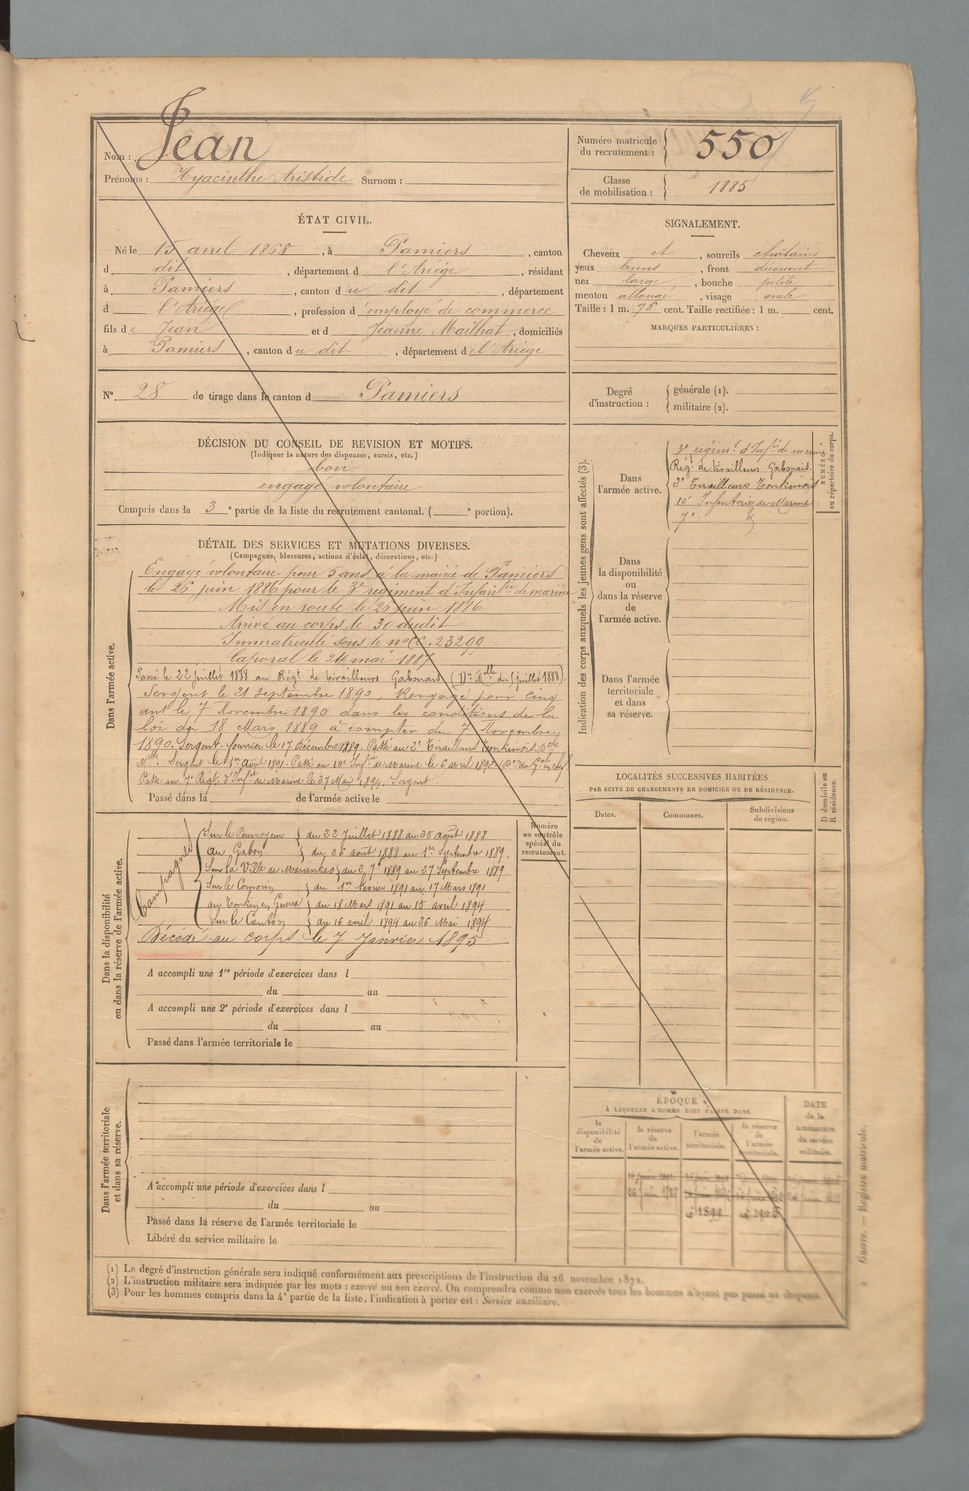 Nom : Jean
Prénoms : Hyacinthe Aristide Surnom :
Numéro matricule du recrutement : 550
Classe de mobilisation : 1885
ÉTAT CIVIL.
Né le 15 avril 1868, à Pamiers, canton
d dit, département d l'Ariége, résidant
à Pamiers, canton du dit, département
d l'Ariége, profession d'employé de commerce
fils de Jean et d Jeanne Mailhat, domiciliés
à Pamiers, canton du dit, département de l'Ariége
N° 28 de tirage dans le canton d Pamiers
SIGNALEMENT.
Cheveux et, sourcils chatains
yeux bruns, front découvert
nez large, bouche petite
menton allongé, visage ovale
Taille : 1 m. 75 cent. Taille rectifiée : 1 m. cent.
MARQUES PARTICULIÈRES :
Degré d'instruction : générale (1).
militaire (2).
DÉCISION DU CONSEIL DE REVISION ET MOTIFS.
(Indiquer la nature des dispenses, sursis, etc.)
bon
engagé volontaire
Compris dans la 3e partie de la liste du recrutement cantonal. ( e portion).
DÉTAIL DES SERVICES ET MUTATIONS DIVERSES.
(Campagnes, blessures, actions d'éclat, décorations, etc.)
Dans l'armée active.
Engagé volontaire pour 5 ans à la mairie de Pamiers
le 26 juin 1886 pour le 3e regiment d'Infanterie de marine
Mis en route le 26 juin 1886
Arrivé au corps le 30 dudit
Immatriculé sous le n° C. 23299
Caporal le 24 mai 1887
Passé le 22 juillet 1888 au Régt de tirailleurs Gabonais (Dn Mlle du 5 juillet 1888).
Sergent le 21 septembre 1890, Rengagé pour cinq
ans le 7 Novembre 1890 dans les conditions de la
loi du 18 Mars 1889 à compter du 7 Novembre
1890. Sergent fourrier le 17 Décembre 1889. Passé au 2e Tirailleurs Tonkinois
Sergent le 1er Août 1891. Passé au 10e Infie de Marine le 6 avril 1892
Passé au 7e Régt d'Infie de Marine le 27 Mai 1894. Sergent.
Passé dans la de l'armée active le
Indication des corps auxquels les jeunes gens sont affectés (3).
Dans l'armée active.
3e régimt d'Infie de marine
Régt de tirailleurs Gabonais.
2e Tirailleurs Tonkinois
10e Infanterie de Marine
7e
NUMÉRO au répertoire du corps.
Dans la disponibilité ou dans la réserve de l'armée active.
Dans l'armée territoriale et dans sa réserve.
LOCALITÉS SUCCESSIVES HABITÉES
PAR SUITE DE CHANGEMENTS DE DOMICILE OU DE RÉSIDENCE.
Dates. Communes. Subdivisions de région. D domicile ou R résidence.
Dans la disponibilité ou dans la réserve de l'armée active.
Numéro au contrôle spécial du recrutement.
Campagnes
Sur le Pourvoyeur du 22 Juillet 1888 au 25 août 1888
au Gabon du 26 août 1888 au 1er Septembre 1889.
Sur la Ville de Maranhao du 2 7bre 1889 au 27 Septembre 1889
Sur le Comorin du 1er février 1891 au 17 Mars 1891
au Tonkin en Guerre du 18 Mars 1891 au 15 avril 1894
Sur le Canton du 16 avril 1894 au 26 Mai 1894
Décédé au corps le 7 Janvier 1895
A accompli une 1re période d'exercices dans l
du au
A accompli une 2e période d'exercices dans l
du au
Passé dans l'armée territoriale le
Dans l'armée territoriale et dans sa réserve.
A accompli une période d'exercices dans l
du au
Passé dans la réserve de l'armée territoriale le
Libéré du service militaire le
ÉPOQUE
À LAQUELLE L'HOMME DOIT PASSER DANS
la disponibilité de l'armée active.
la réserve de l'armée active.
l'armée territoriale.
la réserve de l'armée territoriale.
DATE de la LIBÉRATION du service militaire.
(1) Le degré d'instruction générale sera indiqué conformément aux prescriptions de l'instruction du 26 novembre 1872.
(2) L'instruction militaire sera indiquée par les mots : exercé ou non exercé. On comprendra comme non exercés tous les hommes n'ayant pas passé au drapeau.
(3) Pour les hommes compris dans la 4e partie de la liste, l'indication à porter est : Service auxiliaire.
Guerre. — Registre matricule.